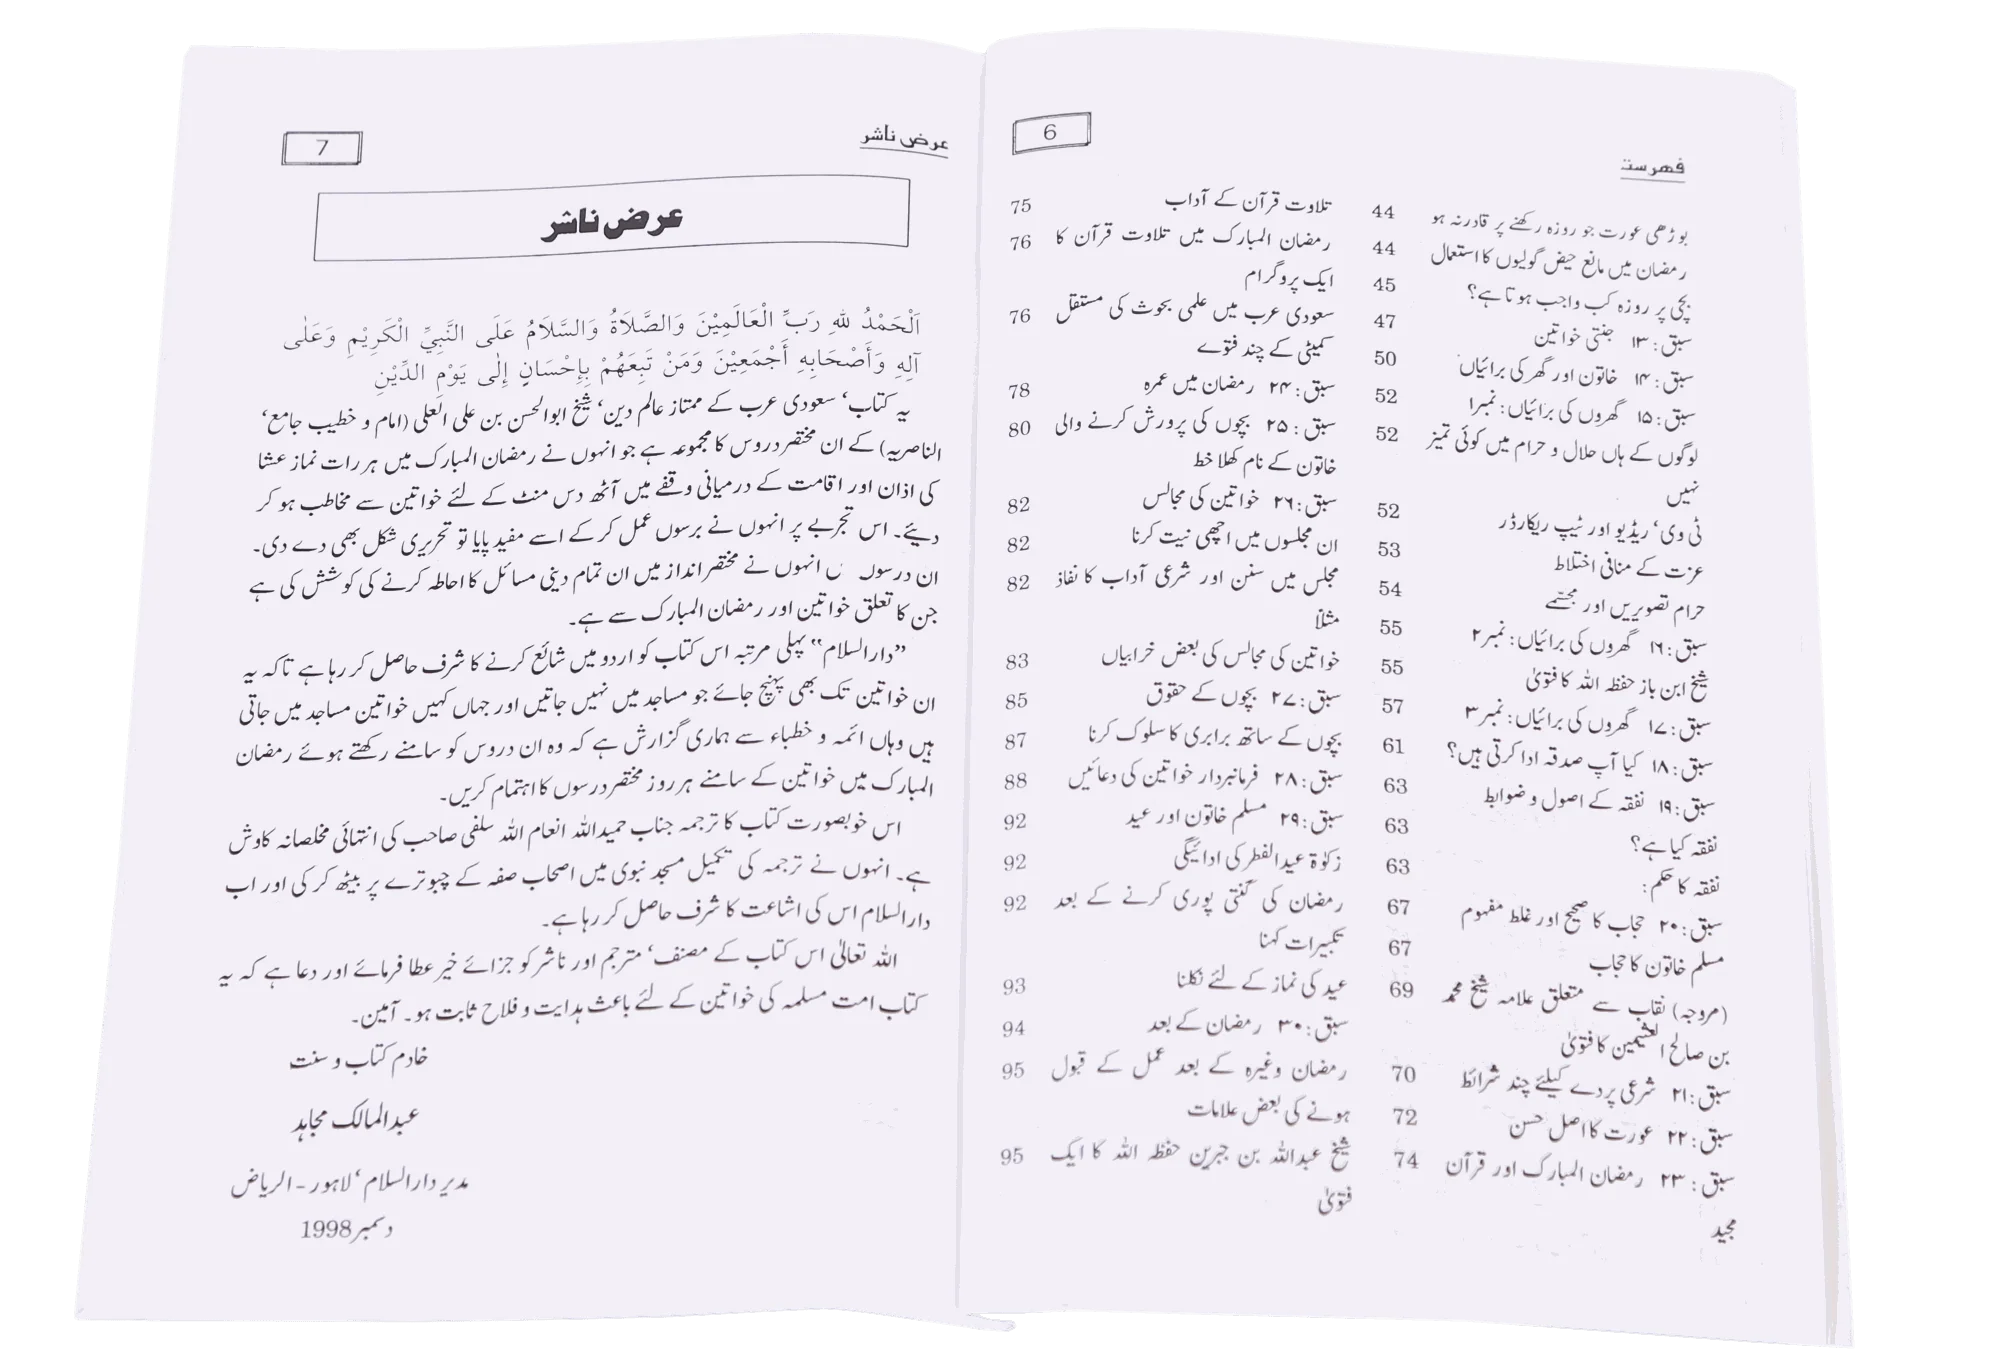 6
فہرست
بوڑھی عورت جو روزہ رکھنے پر قادر نہ ہو 44
رمضان میں مانع حیض گولیوں کا استعمال 44
بچی پر روزہ کب واجب ہوتا ہے؟ 45
سبق: ۱۳ جنتی خواتین 47
سبق: ۱۴ خاتون اور گھر کی برائیاں 50
سبق: ۱۵ گھروں کی برائیاں: نمبر۱ 52
لوگوں کے ہاں حلال و حرام میں کوئی تمیز 52
نہیں
ٹی وی‘ ریڈیو اور ٹیپ ریکارڈر 52
عزت کے منافی اختلاط 53
حرام تصویریں اور مجسّمے 54
سبق: ۱۶ گھروں کی برائیاں: نمبر۲ 55
شیخ ابن باز حفظہ اللہ کا فتویٰ 55
سبق: ۱۷ گھروں کی برائیاں: نمبر۳ 57
سبق: ۱۸ کیا آپ صدقہ ادا کرتی ہیں؟ 61
سبق: ۱۹ نفقہ کے اصول و ضوابط 63
نفقہ کیا ہے؟ 63
نفقہ کا حکم: 63
سبق: ۲۰ حجاب کا صحیح اور غلط مفہوم 67
مسلم خاتون کا حجاب 67
(مروجہ) نقاب سے متعلق علامہ شیخ محمد 69
بن صالح العثیمین کا فتویٰ
سبق: ۲۱ شرعی پردے کیلئے چند شرائط 70
سبق: ۲۲ عورت کا اصل حسن 72
سبق: ۲۳ رمضان المبارک اور قرآن 74
مجید
تلاوت قرآن کے آداب 75
رمضان المبارک میں تلاوت قرآن کا 76
ایک پروگرام
سعودی عرب میں علمی بحوث کی مستقل 76
کمیٹی کے چند فتوے
سبق: ۲۴ رمضان میں عمرہ 78
سبق: ۲۵ بچوں کی پرورش کرنے والی 80
خاتون کے نام کھلا خط
سبق: ۲۶ خواتین کی مجالس 82
ان مجلسوں میں اچھی نیت کرنا 82
مجلس میں سنن اور شرعی آداب کا نفاذ 82
مثلاً
خواتین کی مجالس کی بعض خرابیاں 83
سبق: ۲۷ بچوں کے حقوق 85
بچوں کے ساتھ برابری کا سلوک کرنا 87
سبق: ۲۸ فرمانبردار خواتین کی دعائیں 88
سبق: ۲۹ مسلم خاتون اور عید 92
زکوٰۃ عید الفطر کی ادائیگی 92
رمضان کی گنتی پوری کرنے کے بعد 92
تکبیرات کہنا
عید کی نماز کے لئے نکلنا 93
سبق: ۳۰ رمضان کے بعد 94
رمضان وغیرہ کے بعد عمل کے قبول 95
ہونے کی بعض علامات
شیخ عبداللہ بن جبرین حفظہ اللہ کا ایک 95
فتویٰ
عرض ناشر
7
عرض ناشر
اَلْحَمْدُ لِلّٰہِ رَبِّ الْعَالَمِیْنَ وَالصَّلَاۃُ وَالسَّلَامُ عَلَی النَّبِیِّ الْکَرِیْمِ وَعَلٰی
آلِہِ وَأَصْحَابِہِ أَجْمَعِیْنَ وَمَنْ تَبِعَھُمْ بِإِحْسَانٍ إِلٰی یَوْمِ الدِّیْنِ
یہ کتاب‘ سعودی عرب کے ممتاز عالم دین‘ شیخ ابوالحسن بن علی العلی (امام و خطیب جامع‘
الناصریہ) کے ان مختصر دروس کا مجموعہ ہے جو انہوں نے رمضان المبارک میں ہر رات نماز عشا
کی اذان اور اقامت کے درمیانی وقفے میں آٹھ دس منٹ کے لئے خواتین سے مخاطب ہو کر
دیئے۔ اس تجربے پر انہوں نے برسوں عمل کر کے اسے مفید پایا تو تحریری شکل بھی دے دی۔
ان درسوں انہوں نے مختصر انداز میں ان تمام دینی مسائل کا احاطہ کرنے کی کوشش کی ہے
جن کا تعلق خواتین اور رمضان المبارک سے ہے۔
”دارالسلام“ پہلی مرتبہ اس کتاب کو اردو میں شائع کرنے کا شرف حاصل کر رہا ہے تاکہ یہ
ان خواتین تک بھی پہنچ جائے جو مساجد میں نہیں جاتیں اور جہاں کہیں خواتین مساجد میں جاتی
ہیں وہاں ائمہ و خطباء سے ہماری گزارش ہے کہ وہ ان دروس کو سامنے رکھتے ہوئے رمضان
المبارک میں خواتین کے سامنے ہر روز مختصر درسوں کا اہتمام کریں۔
اس خوبصورت کتاب کا ترجمہ جناب حمیداللہ انعام اللہ سلفی صاحب کی انتہائی مخلصانہ کاوش
ہے۔ انہوں نے ترجمہ کی تکمیل مسجد نبوی میں اصحاب صفہ کے چبوترے پر بیٹھ کر کی اور اب
دارالسلام اس کی اشاعت کا شرف حاصل کر رہا ہے۔
اللہ تعالیٰ اس کتاب کے مصنف‘ مترجم اور ناشر کو جزائے خیر عطا فرمائے اور دعا ہے کہ یہ
کتاب امت مسلمہ کی خواتین کے لئے باعث ہدایت و فلاح ثابت ہو۔ آمین۔
خادم کتاب و سنت
عبدالمالک مجاہد
مدیر دارالسلام‘ لاہور - الریاض
دسمبر 1998